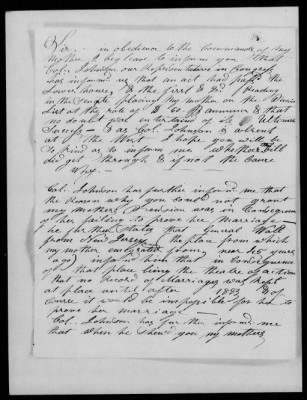 Sir, in obedience to the Commands of my
Mother, I beg leave to inform you that
Col. Johnson our Representative in Congress
has informed us that an act had past the
Lower house, & the first & 2d Reading
in the Senate placing my mother on the
List at the rate of $ 60 Pr Annum & that
no doubt was entertained of its Ultimate
Success - & as Col. Johnson is absent
at the West I hope you will
be kind as to inform me whether Bill
did get through & if not the Cause
Why.
Col. Johnson has farther informed me that
the Reason why you could not grant
my Mother a Pension was in Consequence
of her failing to prove her Marriage -
he farther States that General Wall
from New Jersey the place from which
my mother emigrated from, near 45 years
ago) informed him that in Consequence
of that place being the theatre of action
that no Record of Marriages was kept
at place until after 1783 & of
Course it would be impossible for her to
prove her marriage -
Col. Johnson has further informed me
that when he shewed you my mothers